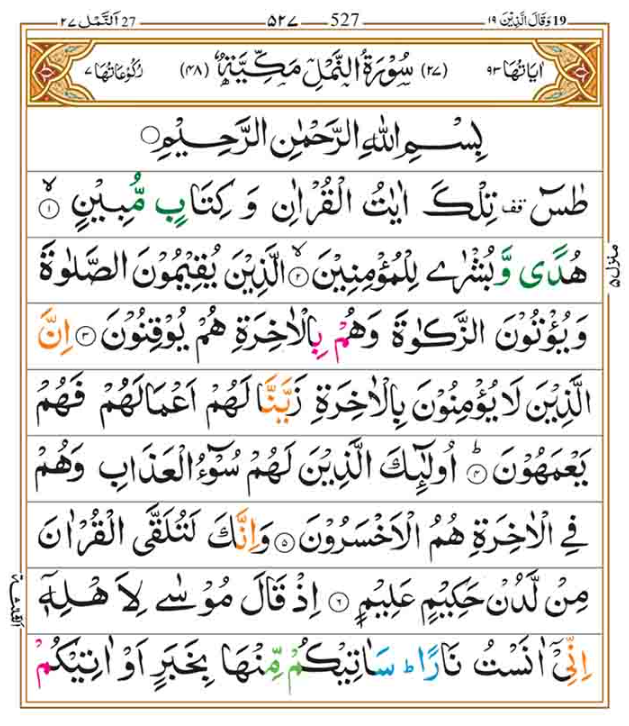 27 اَلنَّمْل ۲۷ ۵۲۷ 527 19 وَقَالَ الَّذِيْنَ ۱۹
اٰيَاتُهَا ۹۳ (۲۷) سُوْرَةُ النَّمْلِ مَكِّيَّةٌ (۴۸) رُكُوْعَاتُهَا ۷
بِسْمِ اللهِ الرَّحْمٰنِ الرَّحِيْمِ
طٰسٓ قف تِلْكَ اٰيٰتُ الْقُرْاٰنِ وَ كِتَابٍ مُّبِيْنٍ ۙ۱
هُدًى وَّبُشْرٰى لِلْمُؤْمِنِيْنَ ۙ۲ الَّذِيْنَ يُقِيْمُوْنَ الصَّلٰوةَ
وَيُؤْتُوْنَ الزَّكٰوةَ وَهُمْ بِالْاٰخِرَةِ هُمْ يُوْقِنُوْنَ ۳ اِنَّ
الَّذِيْنَ لَا يُؤْمِنُوْنَ بِالْاٰخِرَةِ زَيَّنَّا لَهُمْ اَعْمَالَهُمْ فَهُمْ
يَعْمَهُوْنَ ؕ۴ اُولٰٓئِكَ الَّذِيْنَ لَهُمْ سُوْٓءُ الْعَذَابِ وَهُمْ
فِى الْاٰخِرَةِ هُمُ الْاَخْسَرُوْنَ ۵ وَاِنَّكَ لَتُلَقَّى الْقُرْاٰنَ
مِنْ لَّدُنْ حَكِيْمٍ عَلِيْمٍ ۶ اِذْ قَالَ مُوْسٰى لِاَهْلِهٖۤ
اِنِّىْۤ اٰنَسْتُ نَارًا ؕ سَاٰتِيْكُمْ مِّنْهَا بِخَبَرٍ اَوْ اٰتِيْكُمْ
منزل ۵